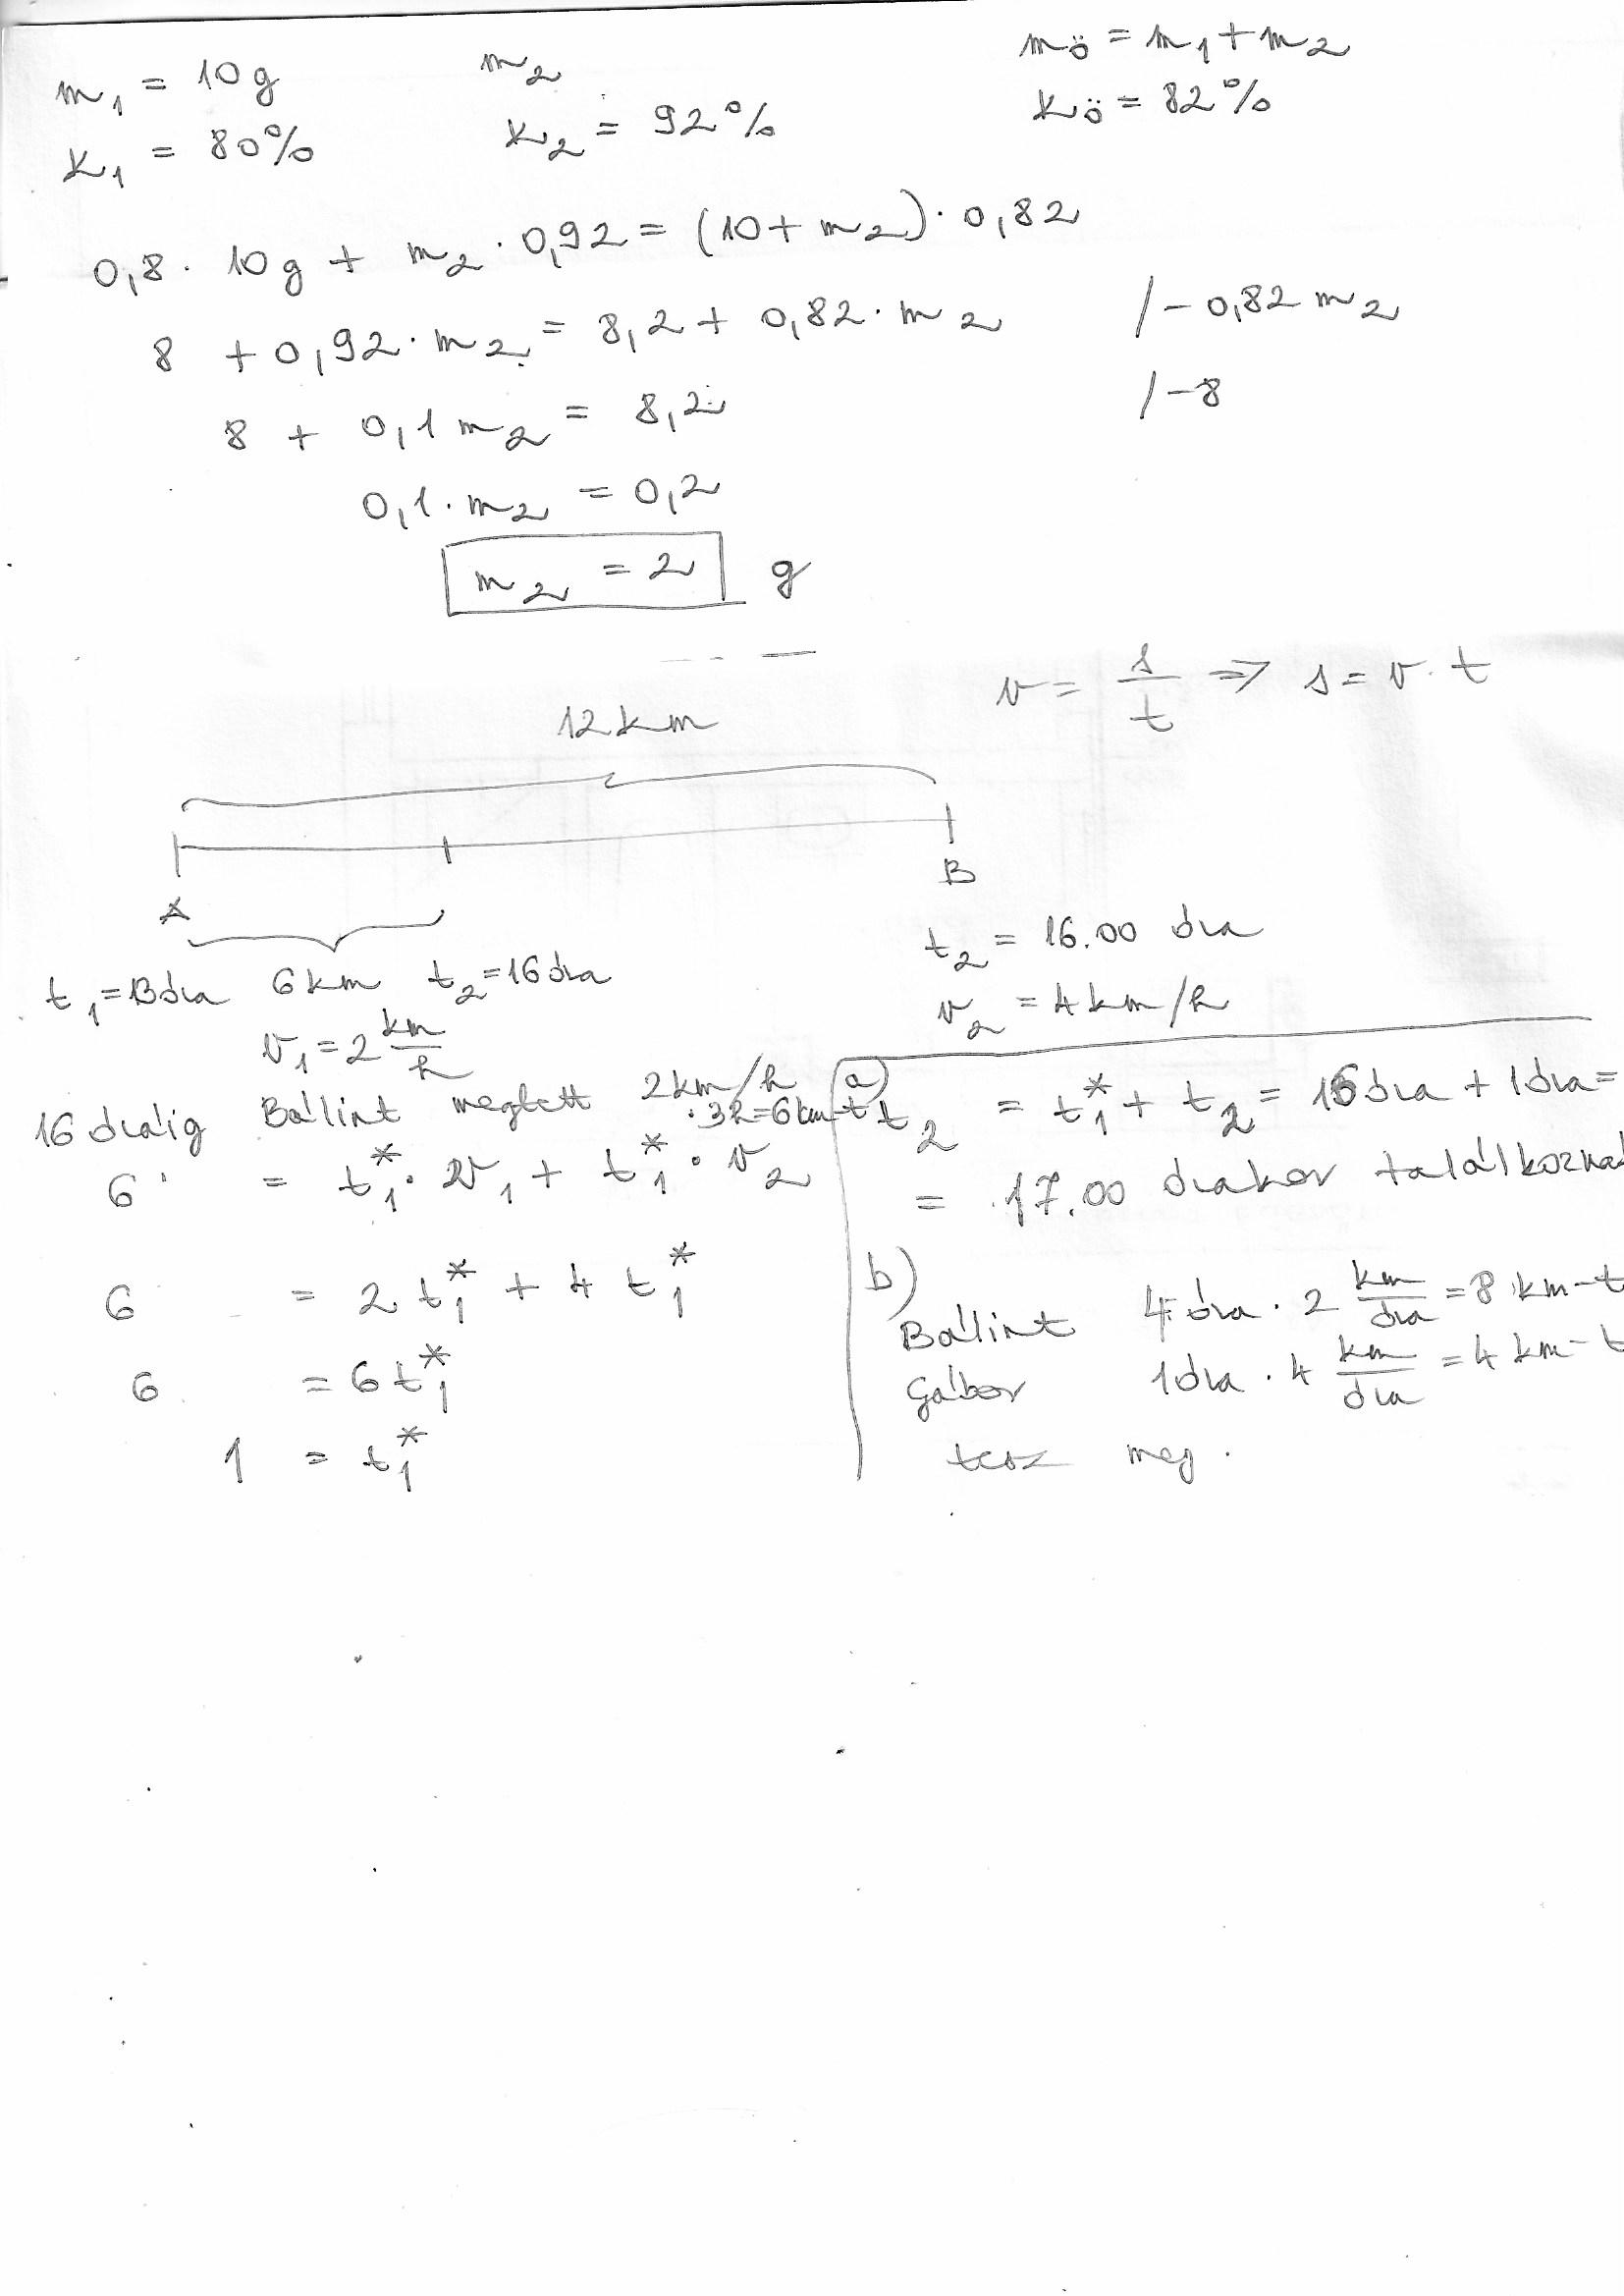 m₁ = 10 g m₂ mö = m₁ + m₂
K₁ = 80% K₂ = 92% Kö = 82%
0,8 · 10g + m₂ · 0,92 = (10 + m₂) · 0,82
8 + 0,92 · m₂ = 8,2 + 0,82 · m₂ / - 0,82 m₂
8 + 0,1 m₂ = 8,2 / - 8
0,1 · m₂ = 0,2
m₂ = 2 g
v = s/t => s = v · t
12 km
A B
t₁ = 13 óra 6 km t₂ = 16 óra
v₁ = 2 km/h
t₂ = 16.00 óra
v₂ = 4 km/h
16 óráig Bálint megtett 2 km/h
· 3h = 6 km-t
6 = t₁* · v₁ + t₁* · v₂
6 = 2 t₁* + 4 t₁*
6 = 6 t₁*
1 = t₁*
a) t₂ = t₁* + t₂ = 16 óra + 1 óra =
= 17.00 órakor találkoznak
b)
Bálint 4 óra · 2 km/óra = 8 km-t
Gábor 1 óra · 4 km/óra = 4 km-t
tesz meg.